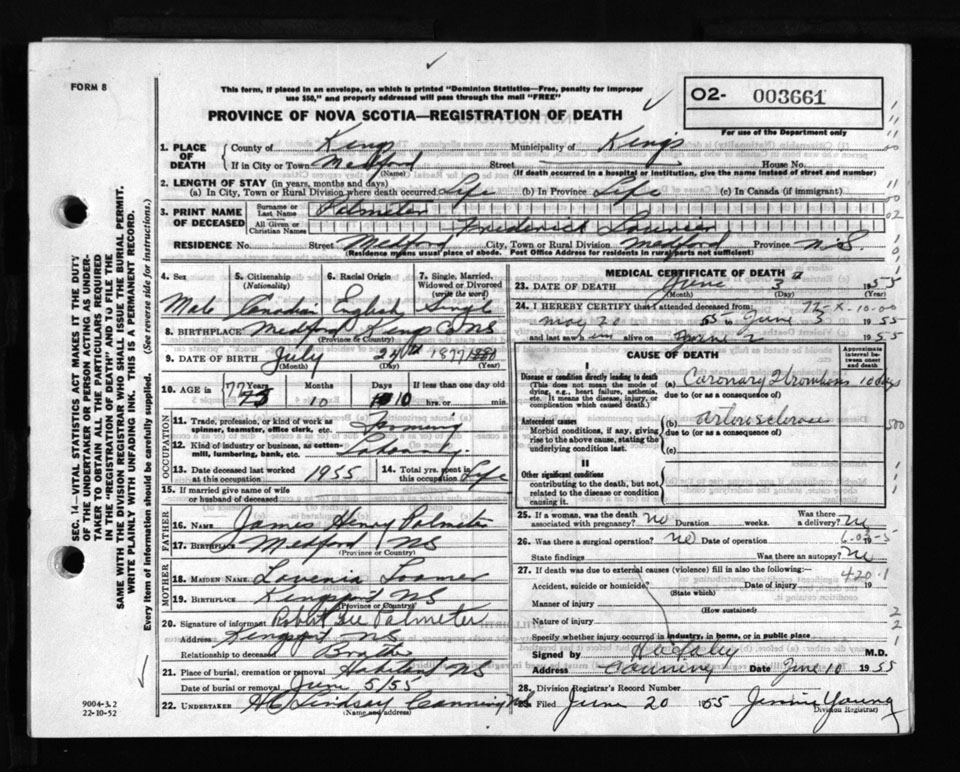 FORM 8
This form, if placed in an envelope, on which is printed "Dominion Statistics—Free, penalty for improper
use $50," and properly addressed will pass through the mail "FREE"
PROVINCE OF NOVA SCOTIA—REGISTRATION OF DEATH
O2- 003661
For use of the Department only
1. PLACE OF DEATH County of Kings Municipality of Kings
If in City or Town Medford Street House No.
(Name) (If death occurred in a hospital or institution, give the name instead of street and number)
2. LENGTH OF STAY (in years, months and days)
(a) In City, Town or Rural Division where death occurred Life (b) In Province Life (c) In Canada (if immigrant)
3. PRINT NAME OF DECEASED Surname or Last Name Palmeter
All Given or Christian Names Frederick
RESIDENCE No. Street Medford City, Town or Rural Division Medford Province N.S.
(Residence means usual place of abode. Post Office Address for residents in rural parts not sufficient)
4. Sex 5. Citizenship (Nationality) 6. Racial Origin 7. Single, Married, Widowed or Divorced (write the word)
Male Canadian English Single
8. BIRTHPLACE Medford Kings Co NS
(Province or Country)
9. DATE OF BIRTH July 24th 1877
(Month) (Day)
10. AGE in 77 Years Months Days If less than one day old
10 10 hrs. or min.
OCCUPATION
11. Trade, profession, or kind of work as spinner, teamster, office clerk, etc. Farming
12. Kind of industry or business, as cotton-mill, lumbering, bank, etc.
13. Date deceased last worked at this occupation 1955 14. Total yrs. spent in this occupation Life
15. If married give name of wife or husband of deceased
FATHER
16. NAME James Henry Palmeter
17. Birthplace Medford NS
(Province or Country)
MOTHER
18. MAIDEN NAME Lavenia Loomer
19. BIRTHPLACE Kingsport NS
(Province or Country)
20. Signature of informant Robert Lee Palmeter
Address Kingsport NS
Relationship to deceased Brother
21. Place of burial, cremation or removal Habitant NS
Date of burial or removal June 5/55
22. UNDERTAKER H C Lindsay Canning NS
(Name and address)
MEDICAL CERTIFICATE OF DEATH
23. DATE OF DEATH June 3 1955
(Month) (Day) (Year)
24. I HEREBY CERTIFY that I attended deceased from:
May 20 55 to June 3 1955
and last saw him alive on June 2 1955
CAUSE OF DEATH
Approximate interval between onset and death
I
Disease or condition directly leading to death (a) Coronary Thrombosis 10 days
(This does not mean the mode of dying, e.g., heart failure, asthenia, etc. It means the disease, injury, or complication which caused death.)
due to (or as a consequence of)
Antecedent causes (b) Arteriosclerosis
Morbid conditions, if any, giving rise to the above cause, stating the underlying condition last.
due to (or as a consequence of)
(c)
II
Other significant conditions
contributing to the death, but not related to the disease or condition causing it.
25. If a woman, was the death associated with pregnancy? no Duration weeks. Was there a delivery? no
26. Was there a surgical operation? no Date of operation 19
State findings Was there an autopsy? no
27. If death was due to external causes (violence) fill in also the following:— 420.1
Accident, suicide or homicide? Date of injury 19
(State which)
Manner of injury
(How sustained)
Nature of injury
Specify whether injury occurred in industry, in home, or in public place
Signed by M.D.
Address Canning Date June 10 1955
28. Division Registrar's Record Number
Filed June 20 1955 Jennie Young
Division Registrar
SEC. 14—VITAL STATISTICS ACT MAKES IT THE DUTY
OF THE UNDERTAKER OR PERSON ACTING AS UNDER-
TAKER TO OBTAIN ALL THE PARTICULARS REQUIRED
IN THE "REGISTRATION OF DEATH" AND TO FILE THE
SAME WITH THE DIVISION REGISTRAR WHO SHALL ISSUE THE BURIAL PERMIT.
WRITE PLAINLY WITH UNFADING INK. THIS IS A PERMANENT RECORD.
Every item of information should be carefully supplied. (See reverse side for instructions.)
9004-3.2
22-10-52